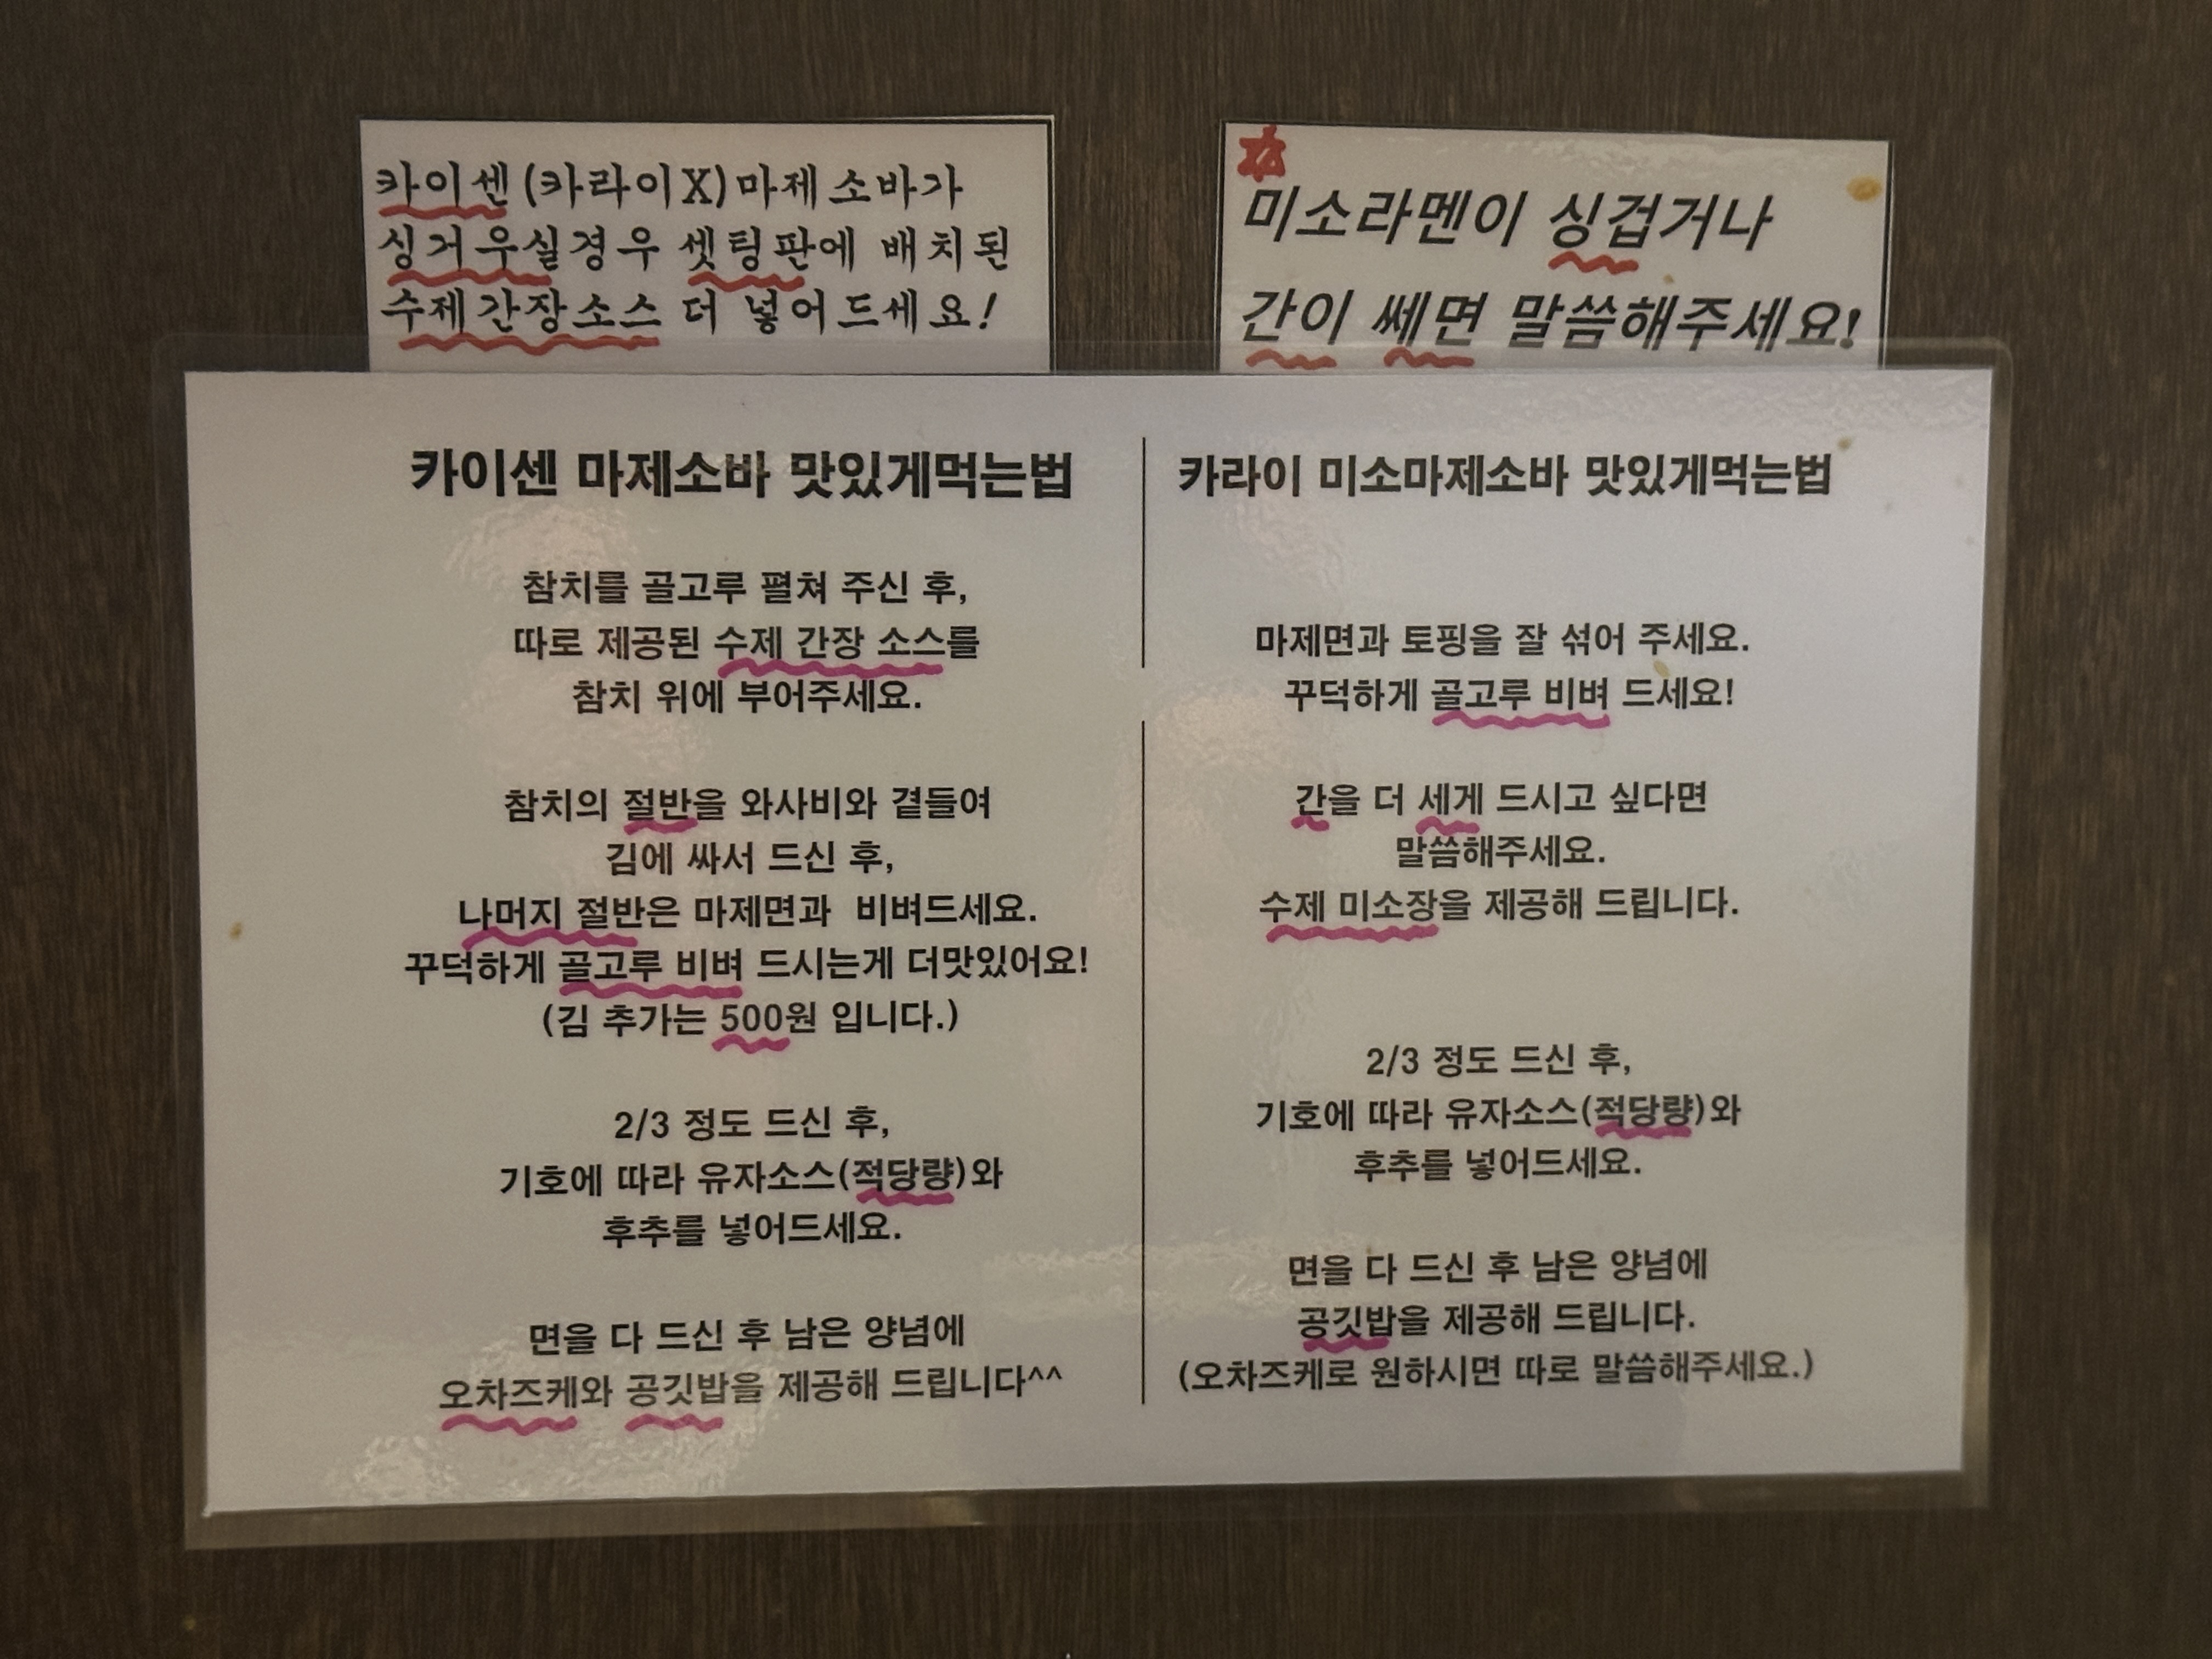 카이센(카라이X)마제소바가
싱거우실경우 셋팅판에 배치된
수제간장소스 더 넣어드세요!
미소라멘이 싱겁거나
간이 쎄면 말씀해주세요!
카이센 마제소바 맛있게먹는법
참치를 골고루 펼쳐 주신 후,
따로 제공된 수제 간장 소스를
참치 위에 부어주세요.
참치의 절반을 와사비와 곁들여
김에 싸서 드신 후,
나머지 절반은 마제면과 비벼드세요.
꾸덕하게 골고루 비벼 드시는게 더맛있어요!
(김 추가는 500원 입니다.)
2/3 정도 드신 후,
기호에 따라 유자소스(적당량)와
후추를 넣어드세요.
면을 다 드신 후 남은 양념에
오차즈케와 공깃밥을 제공해 드립니다^^
카라이 미소마제소바 맛있게먹는법
마제면과 토핑을 잘 섞어 주세요.
꾸덕하게 골고루 비벼 드세요!
간을 더 세게 드시고 싶다면
말씀해주세요.
수제 미소장을 제공해 드립니다.
2/3 정도 드신 후,
기호에 따라 유자소스(적당량)와
후추를 넣어드세요.
면을 다 드신 후 남은 양념에
공깃밥을 제공해 드립니다.
(오차즈케로 원하시면 따로 말씀해주세요.)